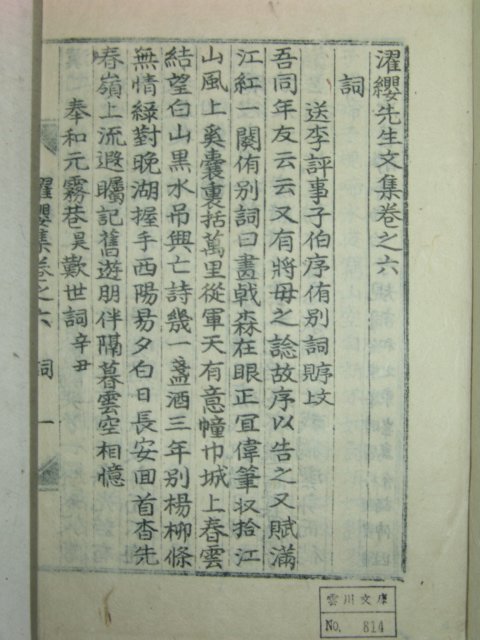 濯纓先生文集卷之六
詞
送李評事子伯序侑別詞
吾同年友云云又有將母之諗故序以告之又賦滿
江紅一闋侑別詞曰畫戟森在眼正宜偉筆收拾江
山風上奚囊裏括萬里從軍天有意幢巾城上春雲
結望白山黑水吊興亡詩幾一盞酒三年別楊柳條
無情綠對晚湖握手西陽易夕白日長安面首杳先
春嶺上流遐矚記舊遊朋伴隔暮雲空相憶
奉和元霧巷昊歎世詞 辛丑
濯纓集卷之六 詞 一
雲川文庫
No. 814